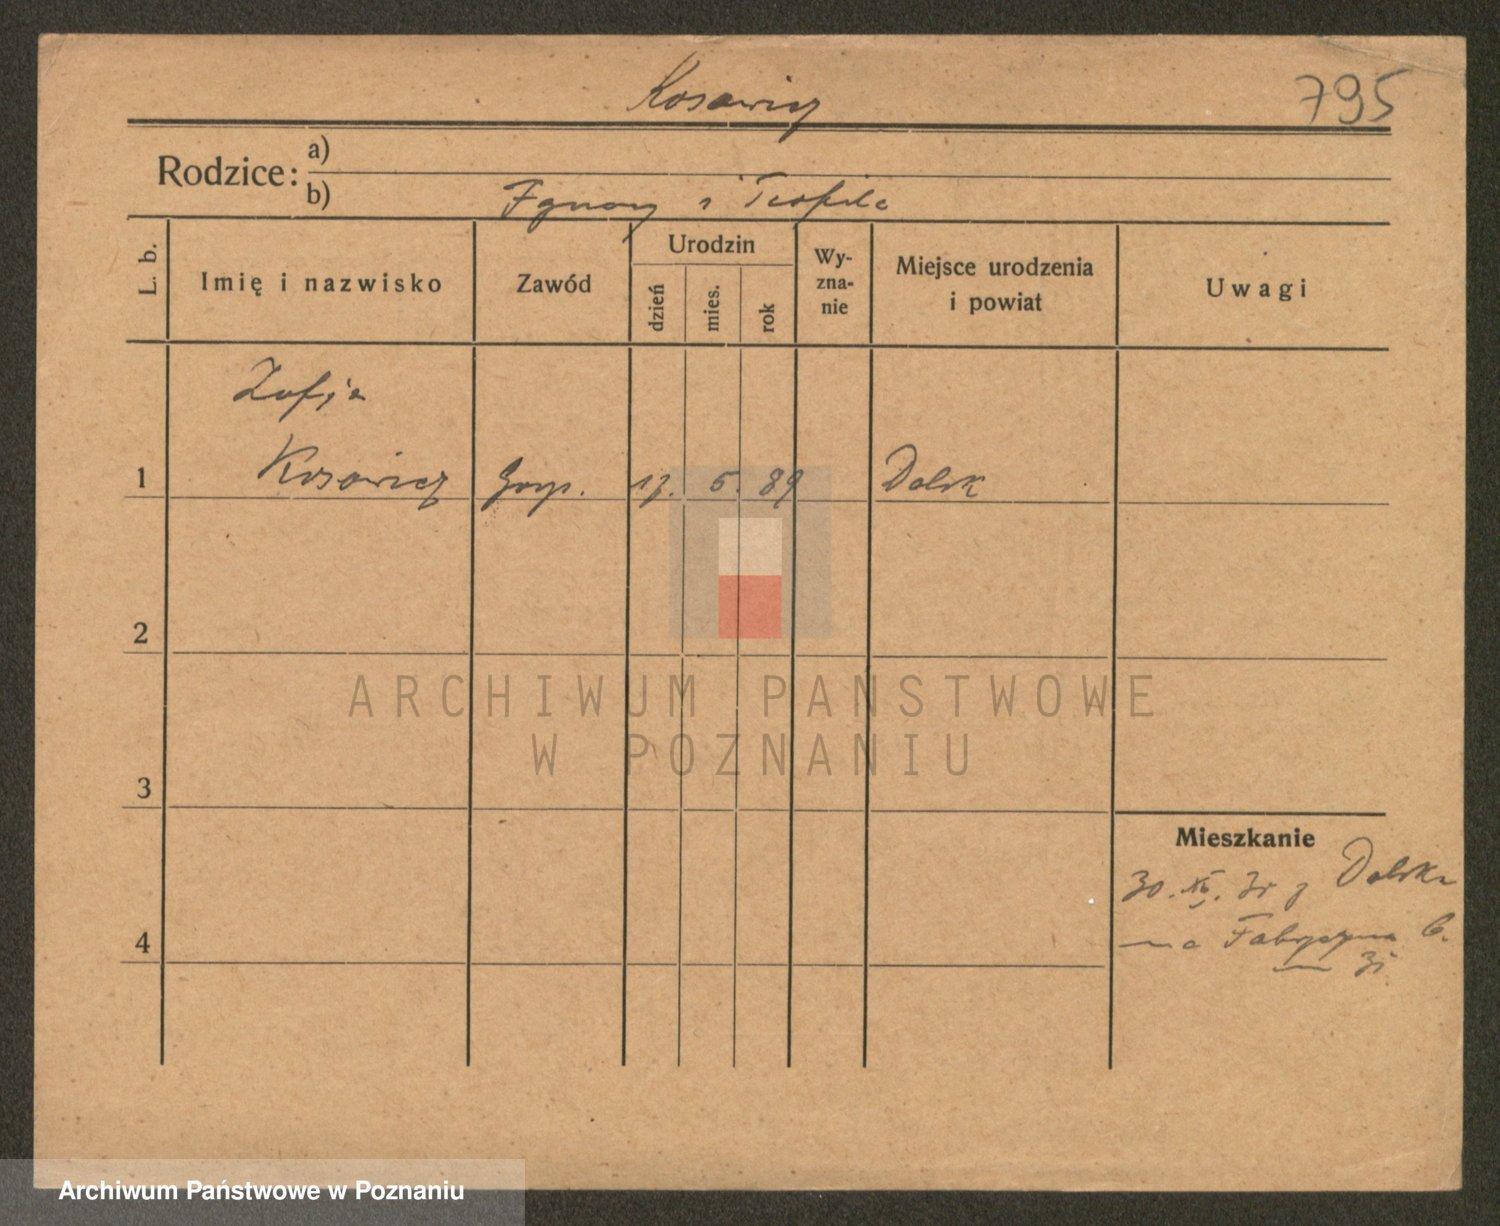 Kosowicz
795
Rodzice: a)
b) Ignacy i Teofila
L. b.
Imię i nazwisko
Zawód
Urodzin
dzień
mies.
rok
Wy-
zna-
nie
Miejsce urodzenia
i powiat
Uwagi
Zofja
1 Kosowicz Gosp. 17. 5. 89 Dolsk
2
3
4
Mieszkanie
30. z Dolska
na Fabryczna
ARCHIWUM PAŃSTWOWE
W POZNANIU
Archiwum Państwowe w Poznaniu